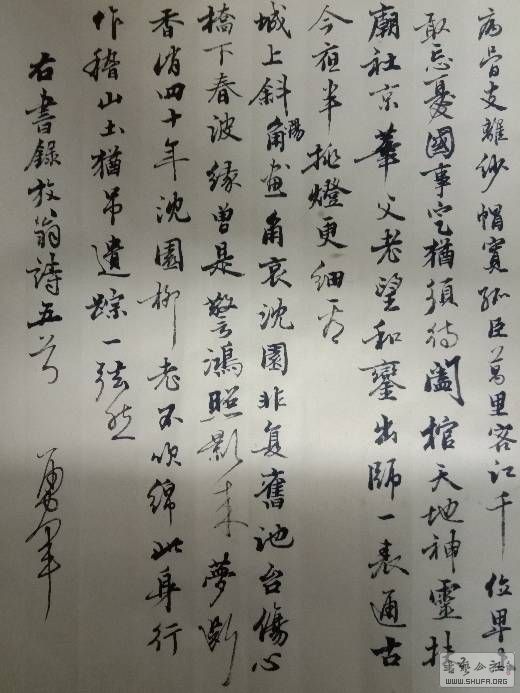 病骨支離紗帽寬孤臣萬里客江干位卑未
敢忘憂國事定猶須待闔棺天地神靈扶
廟社京華父老望和鑾出師一表通古
今夜半挑燈更細看
城上斜角陽畫角哀沈園非复舊池台傷心
橋下春波緑曾是驚鴻照影来夢斷
香消四十年沈園柳老不吹綿此身行
作稽山土猶吊遺踪一泫然
右書錄放翁詩五首
WWW.SHUFA.ORG